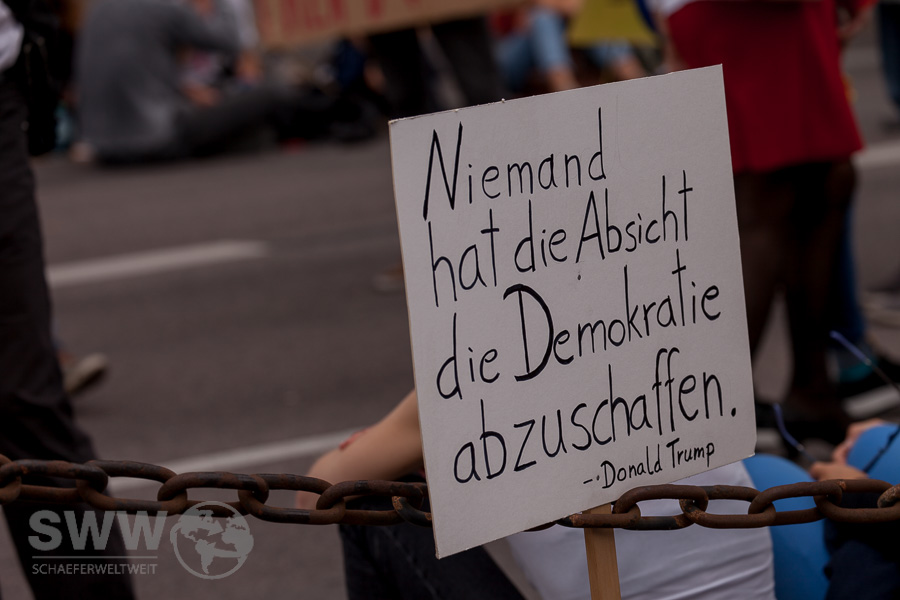 Niemand
hat die Absicht
die Demokratie
abzuschaffen.
-- Donald Trump
SWW
SCHAEFERWELTWEIT